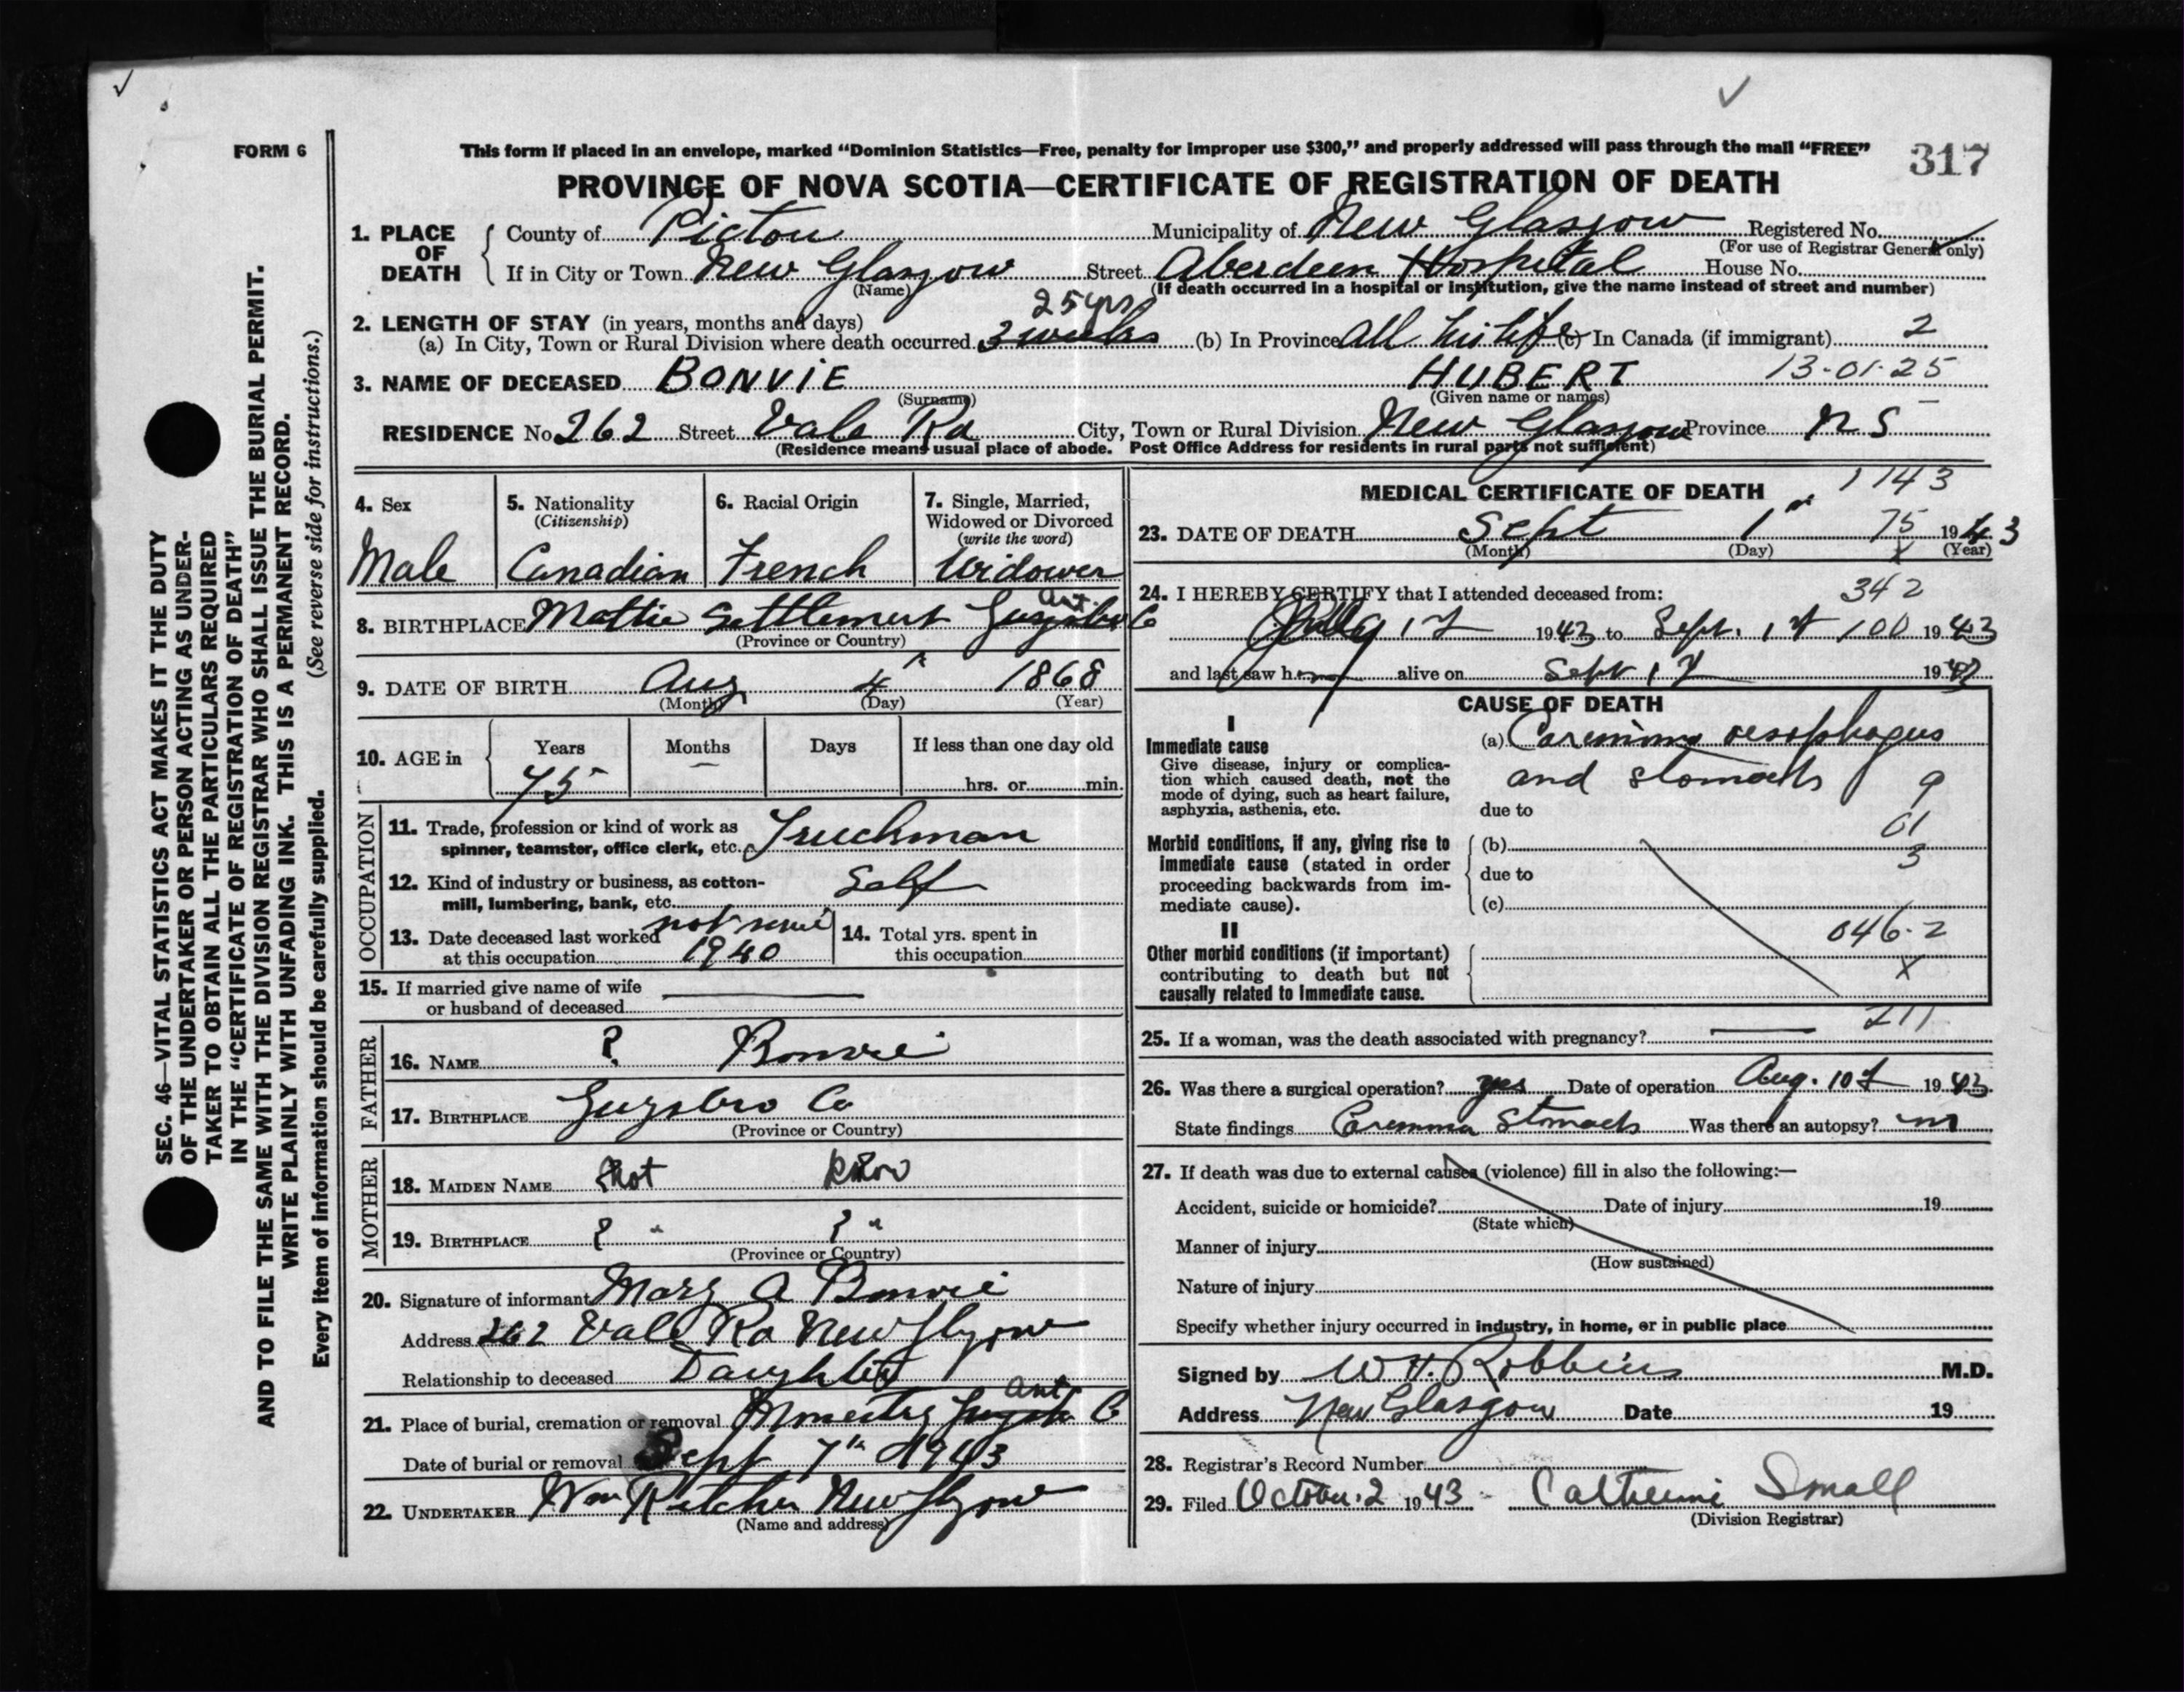 FORM 6
This form if placed in an envelope, marked “Dominion Statistics—Free, penalty for improper use $300,” and properly addressed will pass through the mail “FREE”
317
PROVINCE OF NOVA SCOTIA—CERTIFICATE OF REGISTRATION OF DEATH
1. PLACE OF DEATH County of Pictou Municipality of New Glasgow Registered No.
(For use of Registrar General only)
If in City or Town New Glasgow Street Aberdeen Hospital House No.
(Name) (If death occurred in a hospital or institution, give the name instead of street and number)
25 yrs
2. LENGTH OF STAY (in years, months and days)
(a) In City, Town or Rural Division where death occurred 3 weeks (b) In Province All his life (c) In Canada (if immigrant) 2
3. NAME OF DECEASED BONVIE HUBERT 13-01-25
(Surname) (Given name or names)
RESIDENCE No 262 Street Vale Rd City, Town or Rural Division New Glasgow Province N S
(Residence means usual place of abode. Post Office Address for residents in rural parts not sufficient)
4. Sex
Male
5. Nationality
(Citizenship)
Canadian
6. Racial Origin
French
7. Single, Married,
Widowed or Divorced
(write the word)
Widower
Ant.
8. BIRTHPLACE Mattie Settlement Guysboro Co
(Province or Country)
9. DATE OF BIRTH Aug 4 1868
(Month) (Day) (Year)
10. AGE in Years Months Days If less than one day old
75 — hrs. or min.
OCCUPATION
11. Trade, profession or kind of work as
spinner, teamster, office clerk, etc. Truckman
12. Kind of industry or business, as cotton-
mill, lumbering, bank, etc. Self
13. Date deceased last worked
at this occupation 1940
14. Total yrs. spent in
this occupation
15. If married give name of wife
or husband of deceased
FATHER
16. NAME ? Bonvie
17. BIRTHPLACE Guysboro Co
(Province or Country)
MOTHER
18. MAIDEN NAME Not Know
19. BIRTHPLACE ? " ? "
(Province or Country)
20. Signature of informant Mary A Bonvie
Address 262 Vale Rd New Glasgow
Relationship to deceased Daughter
Ant
21. Place of burial, cremation or removal Guysb Co
Date of burial or removal Sept 7th 1943
22. UNDERTAKER Wm New Glasgow
(Name and address)
MEDICAL CERTIFICATE OF DEATH 1143
23. DATE OF DEATH Sept 1 75 1943
(Month) (Day) x (Year)
24. I HEREBY CERTIFY that I attended deceased from: 342
1st 1943 to Sept. 1st 100 1943
and last saw him alive on Sept 1st 1943
CAUSE OF DEATH
I
Immediate cause
Give disease, injury or complica-
tion which caused death, not the
mode of dying, such as heart failure,
asphyxia, asthenia, etc.
(a) Carcinoma oesophagus
and stomach 9
due to
Morbid conditions, if any, giving rise to
immediate cause (stated in order
proceeding backwards from im-
mediate cause).
01
(b)
3
due to
(c)
II
Other morbid conditions (if important)
contributing to death but not
causally related to immediate cause.
046-2
x
211
25. If a woman, was the death associated with pregnancy?
26. Was there a surgical operation? yes Date of operation Aug. 10th 1943
State findings Carcinoma Stomach Was there an autopsy? no
27. If death was due to external causes (violence) fill in also the following:—
Accident, suicide or homicide? Date of injury 19
(State which)
Manner of injury
(How sustained)
Nature of injury
Specify whether injury occurred in industry, in home, or in public place
Signed by W H. Robbins M.D.
Address New Glasgow Date 19
28. Registrar's Record Number
29. Filed October 2 1943 Catherine Small
(Division Registrar)
SEC. 46—VITAL STATISTICS ACT MAKES IT THE DUTY
OF THE UNDERTAKER OR PERSON ACTING AS UNDER-
TAKER TO OBTAIN ALL THE PARTICULARS REQUIRED
IN THE “CERTIFICATE OF REGISTRATION OF DEATH”
AND TO FILE THE SAME WITH THE DIVISION REGISTRAR WHO SHALL ISSUE THE BURIAL PERMIT.
WRITE PLAINLY WITH UNFADING INK. THIS IS A PERMANENT RECORD.
Every item of information should be carefully supplied. (See reverse side for instructions.)